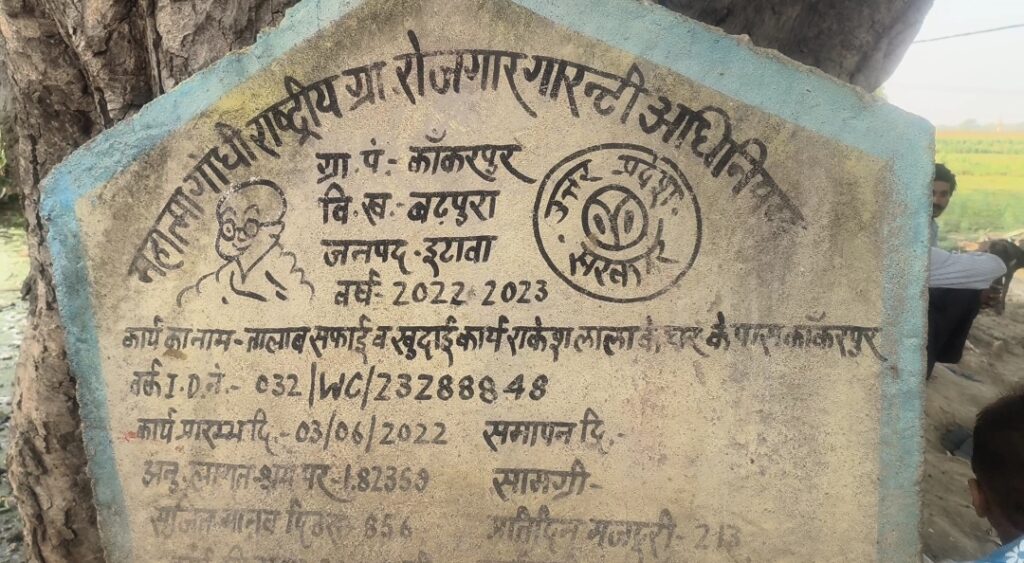 महात्मा गांधी राष्ट्रीय ग्रा रोजगार गारन्टी अधिनियम
ग्रा. पं.- काँकरपुर
वि. ख.- बढ़पुरा
जनपद - इटावा
वर्ष- 2022 2023
उत्तर प्रदेश
सरकार
कार्य का नाम- तालाब सफाई व खुदाई कार्य राकेश लाला के घर के पास काँकरपुर
वर्क I.D.नं.- 032/WC/23288848
कार्य प्रारम्भ दि.-03/06/2022 समापन दि.-
अनु. लागत-श्रम पर-1,82369 सामग्री-
सृजित मानव दिवस- 856 प्रतिदिन मजदूरी- 213